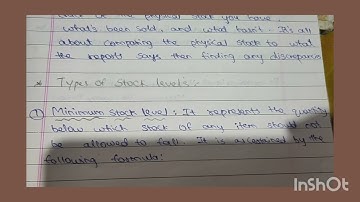 of the physical stock you have
what's been sold, and what hasn't. It's all
about comparing the physical stock to what
the reports says then finding any discrepancies
* Types of stock levels :-
① Minimum stock level : It represents the quantity
below which stock of any item should not
be allowed to fall. It is ascertained by the
following formula:
InShOt